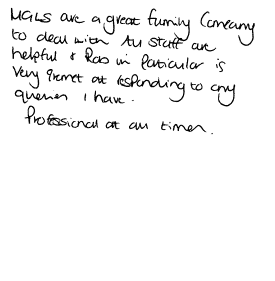 MGLS are a great funding company
to deal with. All staff are
helpful & Rob in particular is
very prompt at responding to any
queries I have.
Professional at all times.